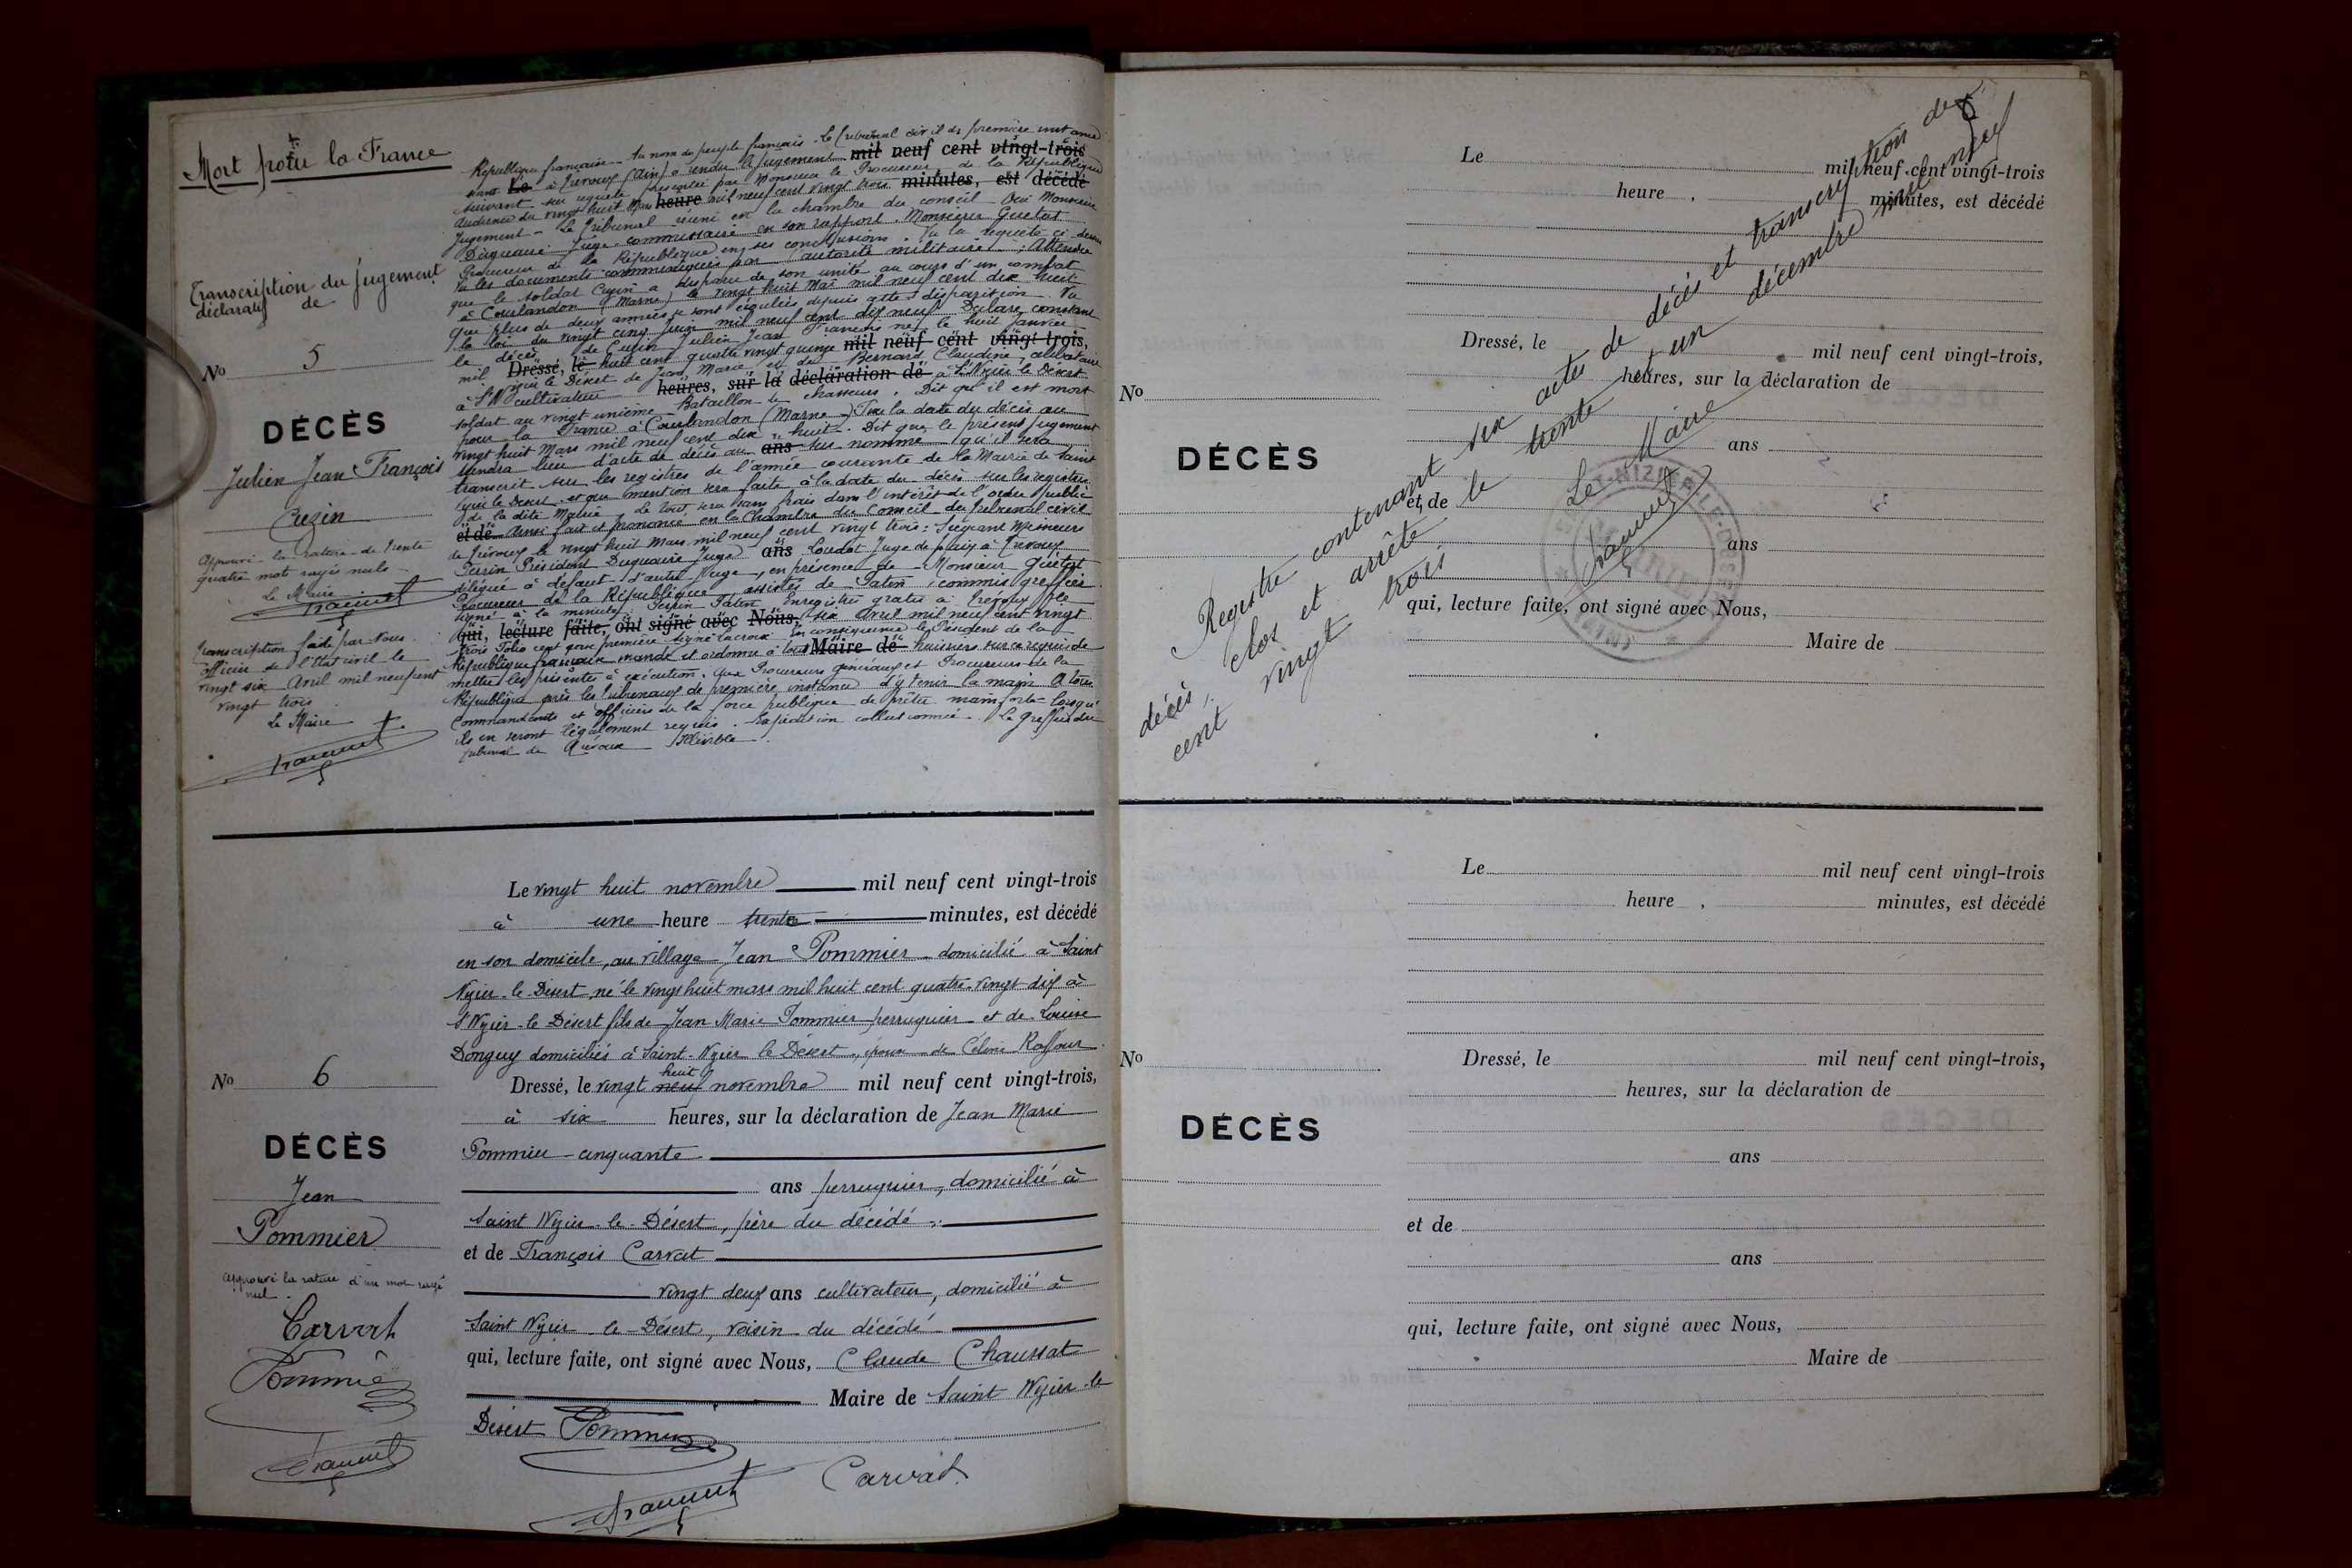 Mort pour la France
Transcription du Jugement
déclaratif de
No 5
DÉCÈS
Julien Jean François
Cuzin
Approuvé la rature de trente
quatre mots rayés nuls
Le Maire
Transcription faite par Nous
officier de l'Etat civil le
vingt six Avril mil neuf cent
vingt trois
Le Maire
République française - Au nom du peuple français - Le Tribunal civil de première instance
séant Le à Trévoux (Ain) a rendu le jugement mil neuf cent vingt-trois
suivant sur requête présentée par Monsieur le Procureur de la République
Audience du vingt huit Mars heure mil neuf cent vingt trois minutes, est décédé
Jugement - Le Tribunal réuni en la chambre du conseil - Oui Monsieur
Duquaire Juge-commissaire en son rapport. Monsieur Guétat
Procureur de la République en ses conclusions. Vu la requête ci dessus
Vu les documents communiqués par l'autorité militaire ; Attendu
que le soldat Cuzin a disparu de son unité au cours d'un combat
à Courlandon (Marne) le vingt huit Mai mil neuf cent dix huit
que plus de deux années se sont écoulées depuis cette disparition. Vu
la loi du vingt cinq Juin mil neuf cent dix neuf Déclare constant
le décès de Cuzin Julien Jean François né le huit Janvier
mil Dressé, le huit cent quatre vingt quinze mil neuf cent vingt-trois,
à St Nizier le Désert de Jean Marie et de Bernard Claudine, célibataire
cultivateur heures, sur la déclaration de à St Nizier le Désert
soldat au vingt unième Bataillon de chasseurs. Dit qu'il est mort
pour la France à Courlandon (Marne) Fixe la date du décès au
vingt huit Mars mil neuf cent dix huit. Dit que le présent jugement
tiendra lieu d'acte de décès au ans sus nommé qu'il sera
transcrit sur les registres de l'année courante de la Mairie de Saint
Nizier le Désert et que mention sera faite à la date du décès sur les registres
de la dite Mairie. Le tout sera sans frais dans l'intérêt de l'ordre public
et de Ainsi fait et prononcé en la Chambre du Conseil du Tribunal civil
de Trévoux le vingt huit Mars mil neuf cent vingt trois : Siégeant Messieurs
Perrin Président Duquaire Juge ans Loudot Juge de paix à Trévoux
délégué à défaut d'autre Juge, en présence de Monsieur Guétat
Procureur de la République assistés de Patin, commis greffier
signé à la minute : Perrin Patin. Enregistré gratis à Trévoux le
qui, lecture faite, ont signé avec Nous, six Avril mil neuf cent vingt
trois Folio cent première signé Lacroix En conséquence le Président de la
République française mande et ordonne à tous Maire de huissiers sur ce requis de
mettre les présentes à exécution. Aux Procureurs généraux et Procureurs de la
République près les Tribunaux de première instance d'y tenir la main A tous
Commandants et officiers de la force publique de prêter main forte lorsqu'
ils en seront légalement requis. Expédition collationnée. Le Greffier du
tribunal de Trévoux Illisible.
Le vingt huit novembre mil neuf cent vingt-trois
à une heure trente minutes, est décédé
en son domicile, au village Jean Pommier domicilié à Saint
Nizier-le-Désert, né le vingt huit mars mil huit cent quatre-vingt dix à
St Nizier-le-Désert fils de Jean Marie Pommier perruquier et de Louise
Donguy domiciliés à Saint-Nizier le Désert, époux de Céline Raffour.
huit
Dressé, le vingt neuf novembre mil neuf cent vingt-trois,
à six heures, sur la déclaration de Jean Marie
Pommier cinquante
ans perruquier, domicilié à
Saint Nizier-le-Désert, père du décédé
et de François Carvat
vingt deux ans cultivateur, domicilié à
Saint Nizier-le-Désert, voisin du décédé
qui, lecture faite, ont signé avec Nous, Claude Chaussat
Maire de Saint Nizier-le
Désert Pommier
Carvat
No 6
DÉCÈS
Jean
Pommier
Approuvé la rature d'un mot rayé
nul.
Carvat
Pommier
Le mil neuf cent vingt-trois
heure minutes, est décédé
Dressé, le mil neuf cent vingt-trois,
heures, sur la déclaration de
No
DÉCÈS
ans
et de
ans
qui, lecture faite, ont signé avec Nous,
Maire de
Registre contenant six actes de décès et transcription de
décès, clos et arrêté le trente et un décembre mil neuf
cent vingt trois
Le Maire
ST-NIZIER-LE-DÉSERT
MAIRIE
(AIN)
Le mil neuf cent vingt-trois
heure minutes, est décédé
Dressé, le mil neuf cent vingt-trois,
heures, sur la déclaration de
No
DÉCÈS
ans
et de
ans
qui, lecture faite, ont signé avec Nous,
Maire de